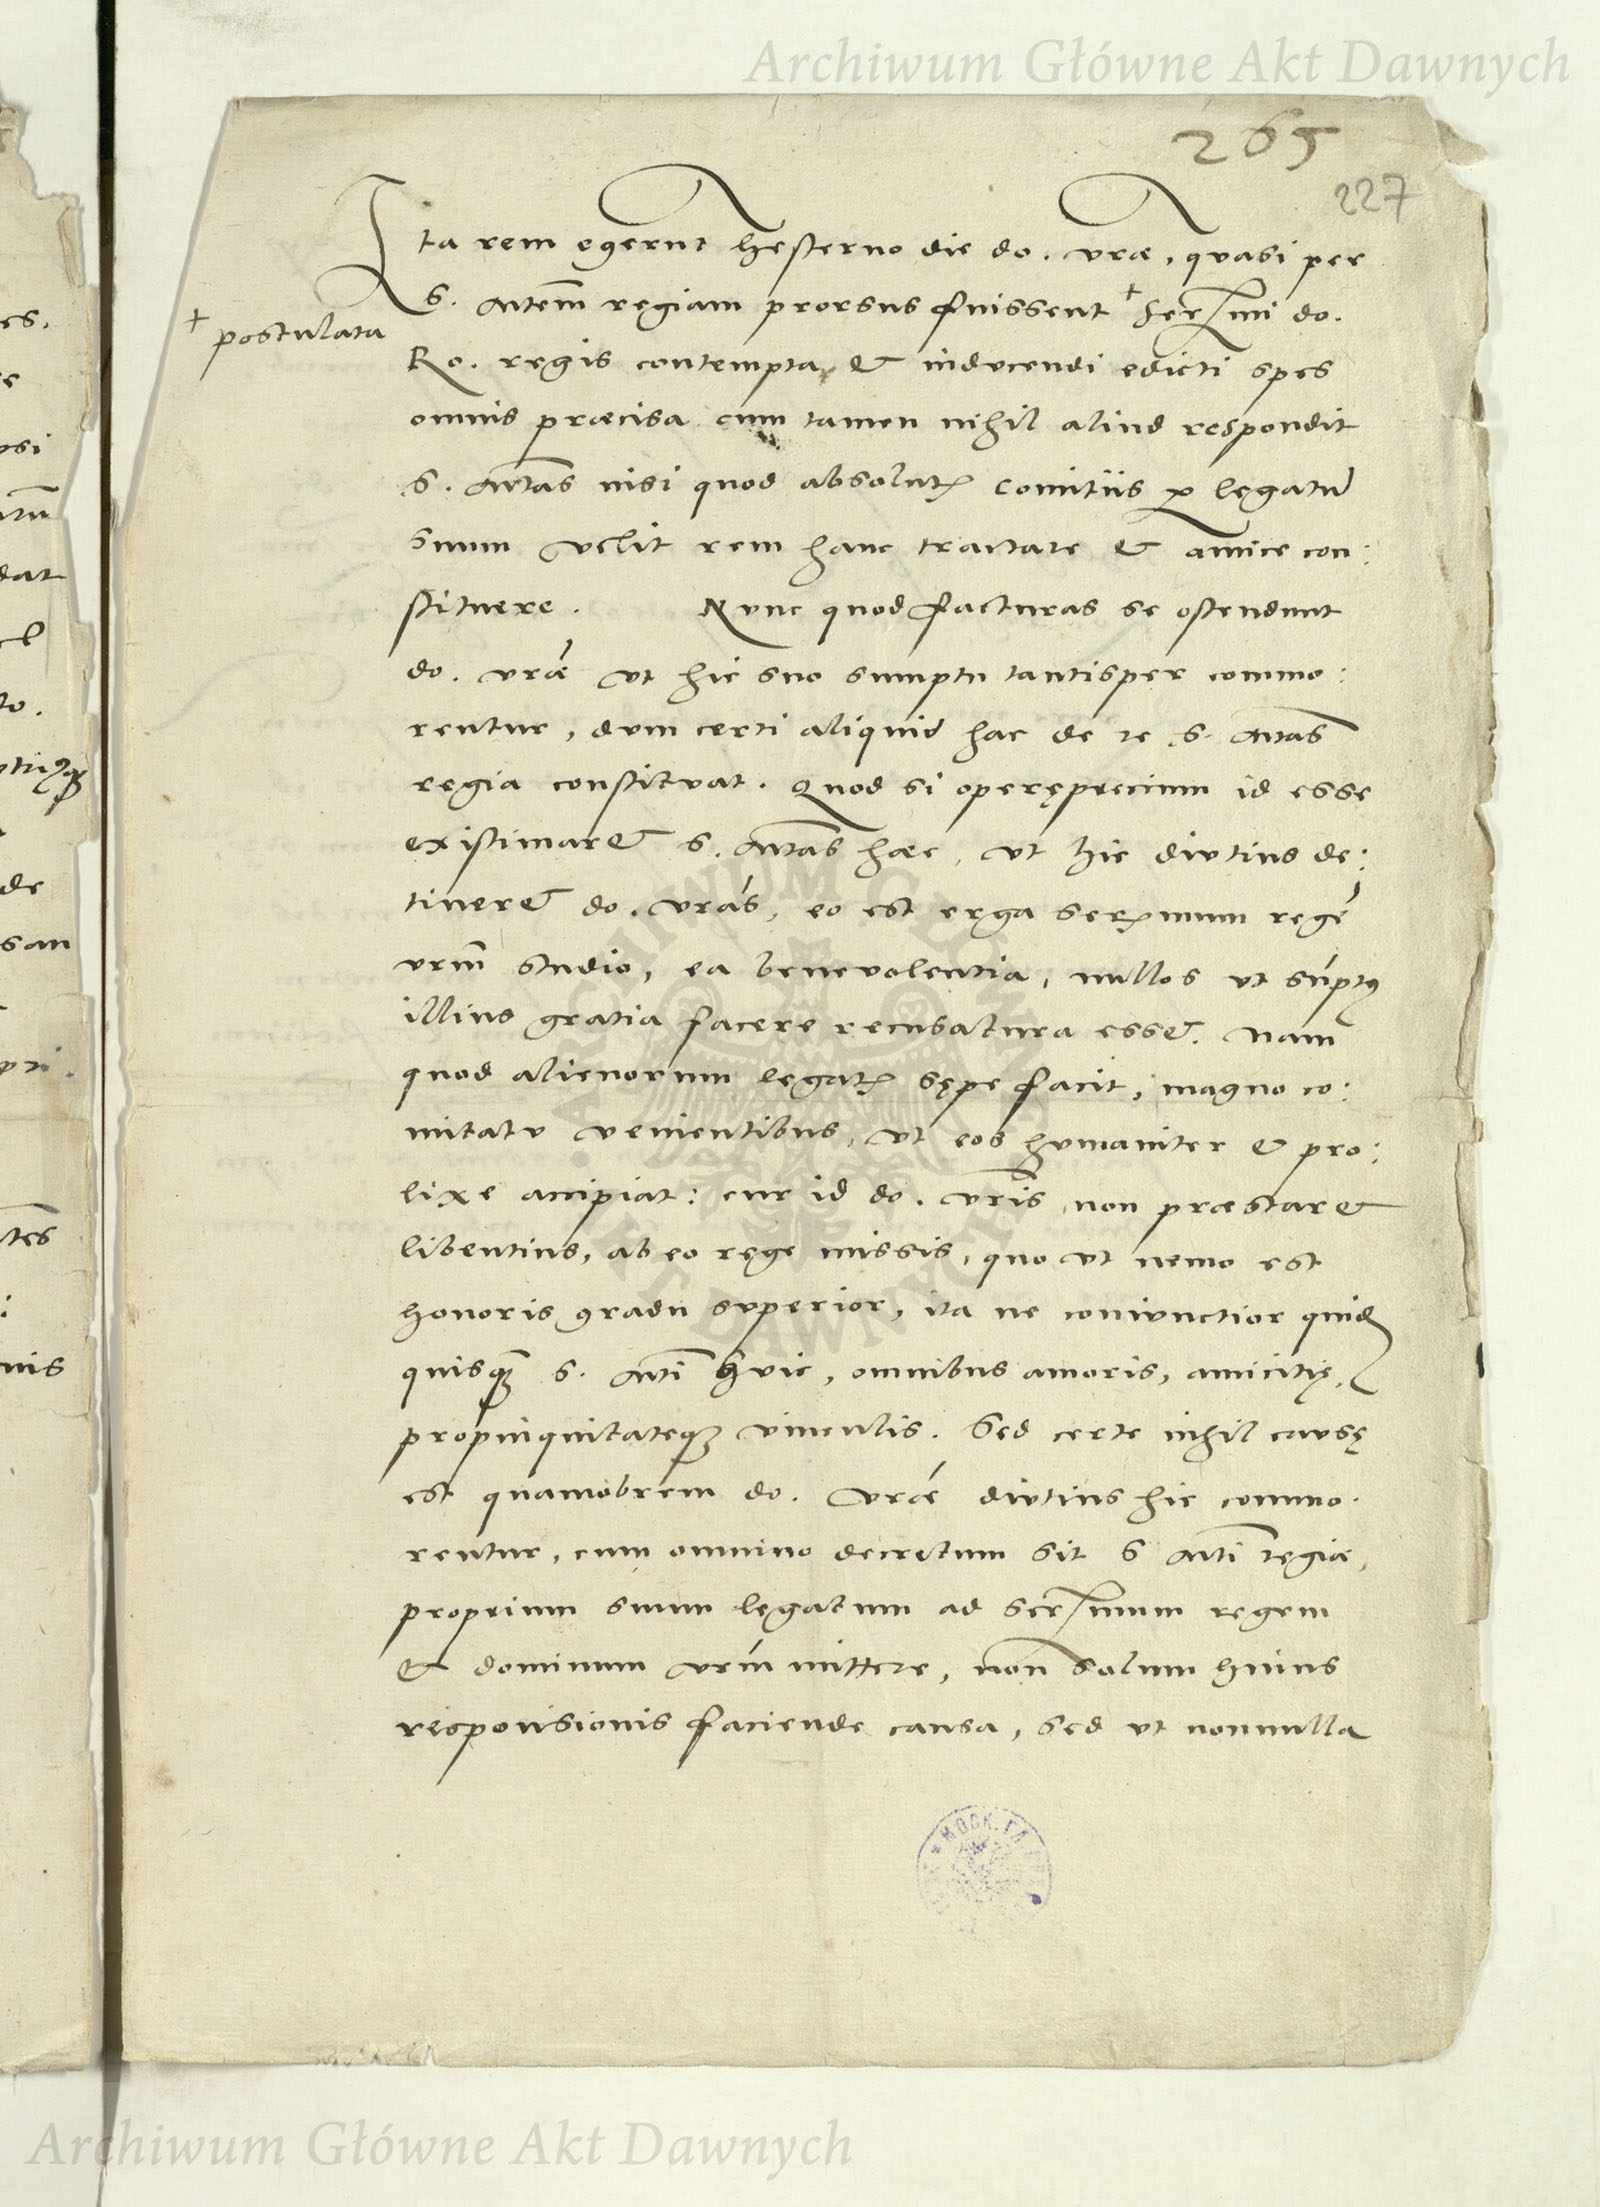 Archiwum Główne Akt Dawnych
265
227
Ita rem egerunt hesterno die do. vrae, quasi per
S. Mtem regiam prorsus fuissent + Sermi do.
+ postulata
Ro. regis contempta, & inducendi edicti spes
omnis praecisa cum tamen nihil aliud respondit
S. Mtas nisi quod absolutis comitiis per legatum
suum velit rem hanc tractare & amice con:
stituere. Nunc quod facturas se ostendunt
do. vrae ut hic suo sumptu tantisper commo:
rentur, dum certi aliquid hac de re S. Mtas
regia constituat. Quod si operęprecium id esse
existimaret S. Mtas haec, ut hic diutius de:
tineret do. vras, eo est erga serenissimum regē
vrm studio, ea benevolentia, nullos ut sūptus
illius gratia facere recusatura esset. Nam
quod alienorum legatis sępe facit, magno co:
mitatu venientibus, ut eos humaniter & pro:
lixe accipiat: cur id do. vris non praestaret
libentius, ab eo rege missis, quo ut nemo est
honoris gradu superior, ita ne coniunctior quidem
quisquam S. Mti huic, omnibus amoris, amicitię,
propinquitatesque vinculis. Sed certe nihil causę
est quamobrem do. vrae diutius hic commo.
rentur, cum omnino decretum sit S Mti regiae,
proprium suum legatum ad Sermum regem
& dominum vrm mittere, non solum huius
responsionis faciende causa, sed ut nonnulla
Archiwum Główne Akt Dawnych